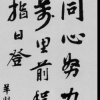 同心努力
萬里前程
指日登